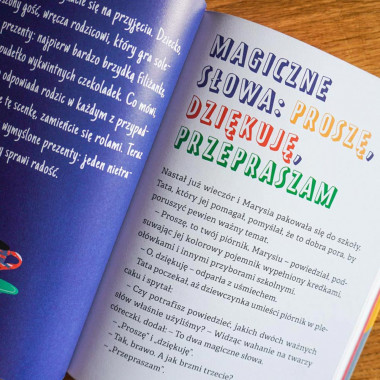 cie się na przyjęciu. Dziecko,
gość, wręcza rodzicowi, który gra sole-
prezenty: najpierw bardzo brzydką filiżankę,
pudełko wykwintnych czekoladek. Co mówi,
odpowiada rodzic w każdym z przypad-
tę scenkę, zamieńcie się rolami. Teraz
wymyślone prezenty: jeden nietra-
sprawi radość.
MAGICZNE
SŁOWA: PROSZĘ,
DZIĘKUJĘ,
PRZEPRASZAM
Nastał już wieczór i Marysia pakowała się do szkoły.
Tata, który jej pomagał, pomyślał, że to dobra pora, by
poruszyć pewien ważny temat.
– Proszę, to twój piórnik, Marysiu – powiedział, pod-
suwając jej kolorowy pojemnik wypełniony kredkami,
ołówkami i innymi przyborami szkolnymi.
– O, dziękuję – odparła z uśmiechem.
Tata poczekał, aż dziewczynka umieści piórnik w ple-
caku i spytał:
– Czy potrafisz powiedzieć, jakich dwóch ważnych
słów właśnie użyliśmy? – Widząc wahanie na twarzy
córeczki, dodał: – To dwa magiczne słowa.
– „Proszę” i „dziękuję”.
– Tak, brawo. A jak brzmi trzecie?
– „Przepraszam”.